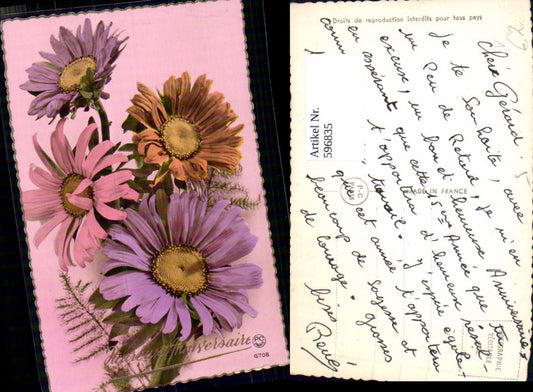 Heureux Anniversaire
PC
6708
Droits de reproduction interdits pour tous pays
Artikel Nr.
596835
MADE IN FRANCE
P-C
PARIS
PHOTOGRAPHIE
VÉRITABLE
29
Cher Gérard.
Je te Souhaite, avec
un Peu de Retard, Je m'en
excuse, un bon et heureuse Anniversaire
en espérant que cette 15ème Année que tu
t'apportera d'heureux
travail. J'espère
que cet année t'apportera
beaucoup de Sagesse et
de Courage.
grosses
bises